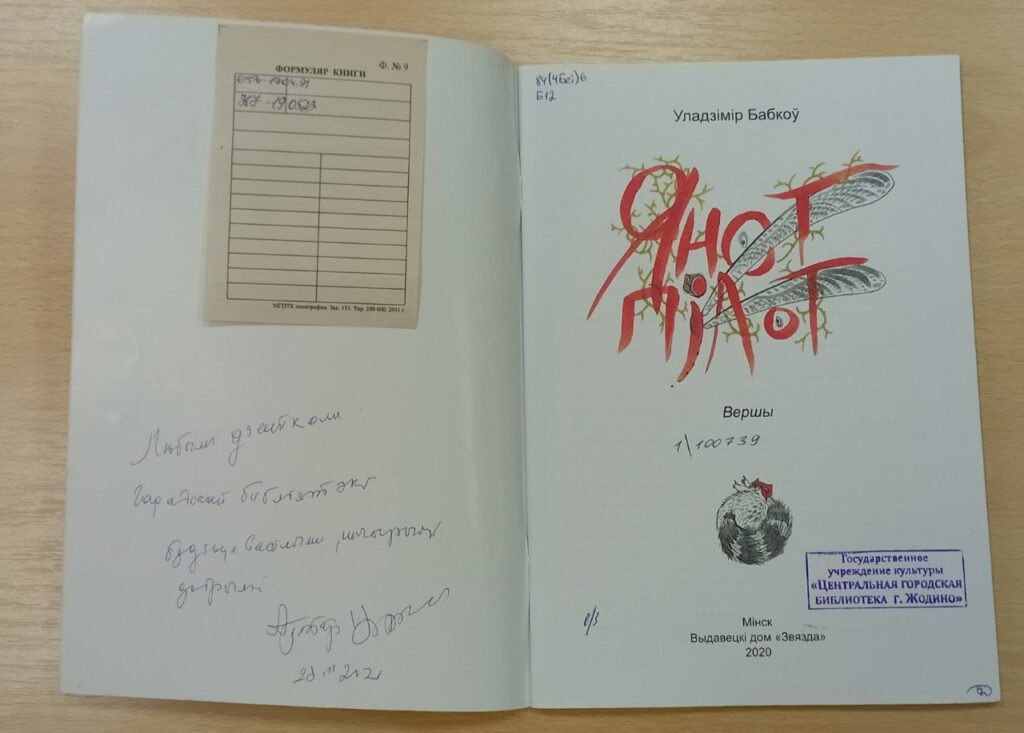 Ф. № 9
ФОРМУЛЯР КНИГИ
МГПТК полиграфии. Зак. 133. Тир. 200 000. 2011 г.
гарадской бібліятэкі
будзьце вясёлымі, шчырымі
добрымі
84(4Беі)6
Б12
Уладзімір Бабкоў
Янот
пілот
Вершы
1\100739
Государственное
учреждение культуры
«ЦЕНТРАЛЬНАЯ ГОРОДСКАЯ
БИБЛИОТЕКА г. ЖОДИНО»
Мінск
Выдавецкі дом «Звязда»
2020